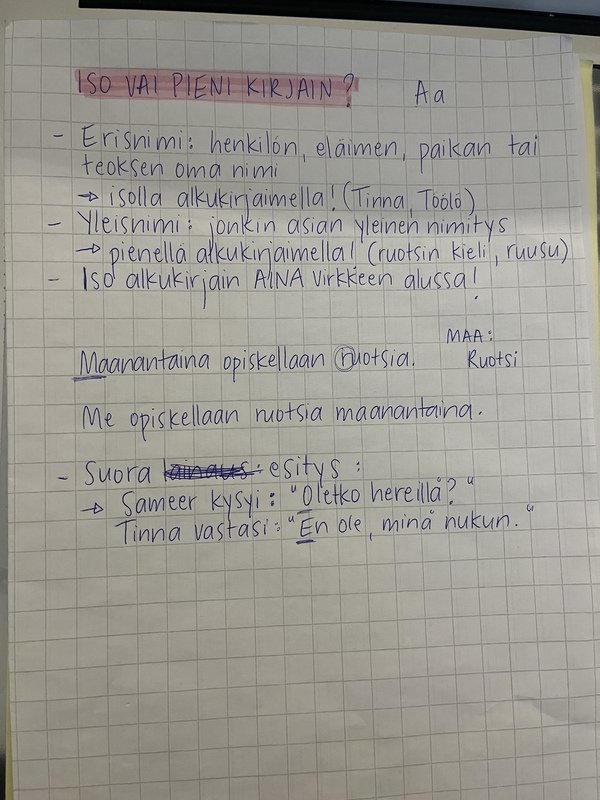 ISO VAI PIENI KIRJAIN? Aa
- Erisnimi: henkilön, eläimen, paikan tai
teoksen oma nimi
→ isolla alkukirjaimella! (Tinna, Töölö)
- Yleisnimi: jonkin asian yleinen nimitys
→ pienellä alkukirjaimella! (ruotsin kieli, ruusu)
- Iso alkukirjain AINA virkkeen alussa!
MAA:
Maanantaina opiskellaan ruotsia. Ruotsi
Me opiskellaan ruotsia maanantaina.
- Suora lainaus: esitys:
→ Sameer kysyi: "Oletko hereillä?"
Tinna vastasi: "En ole, minä nukun."